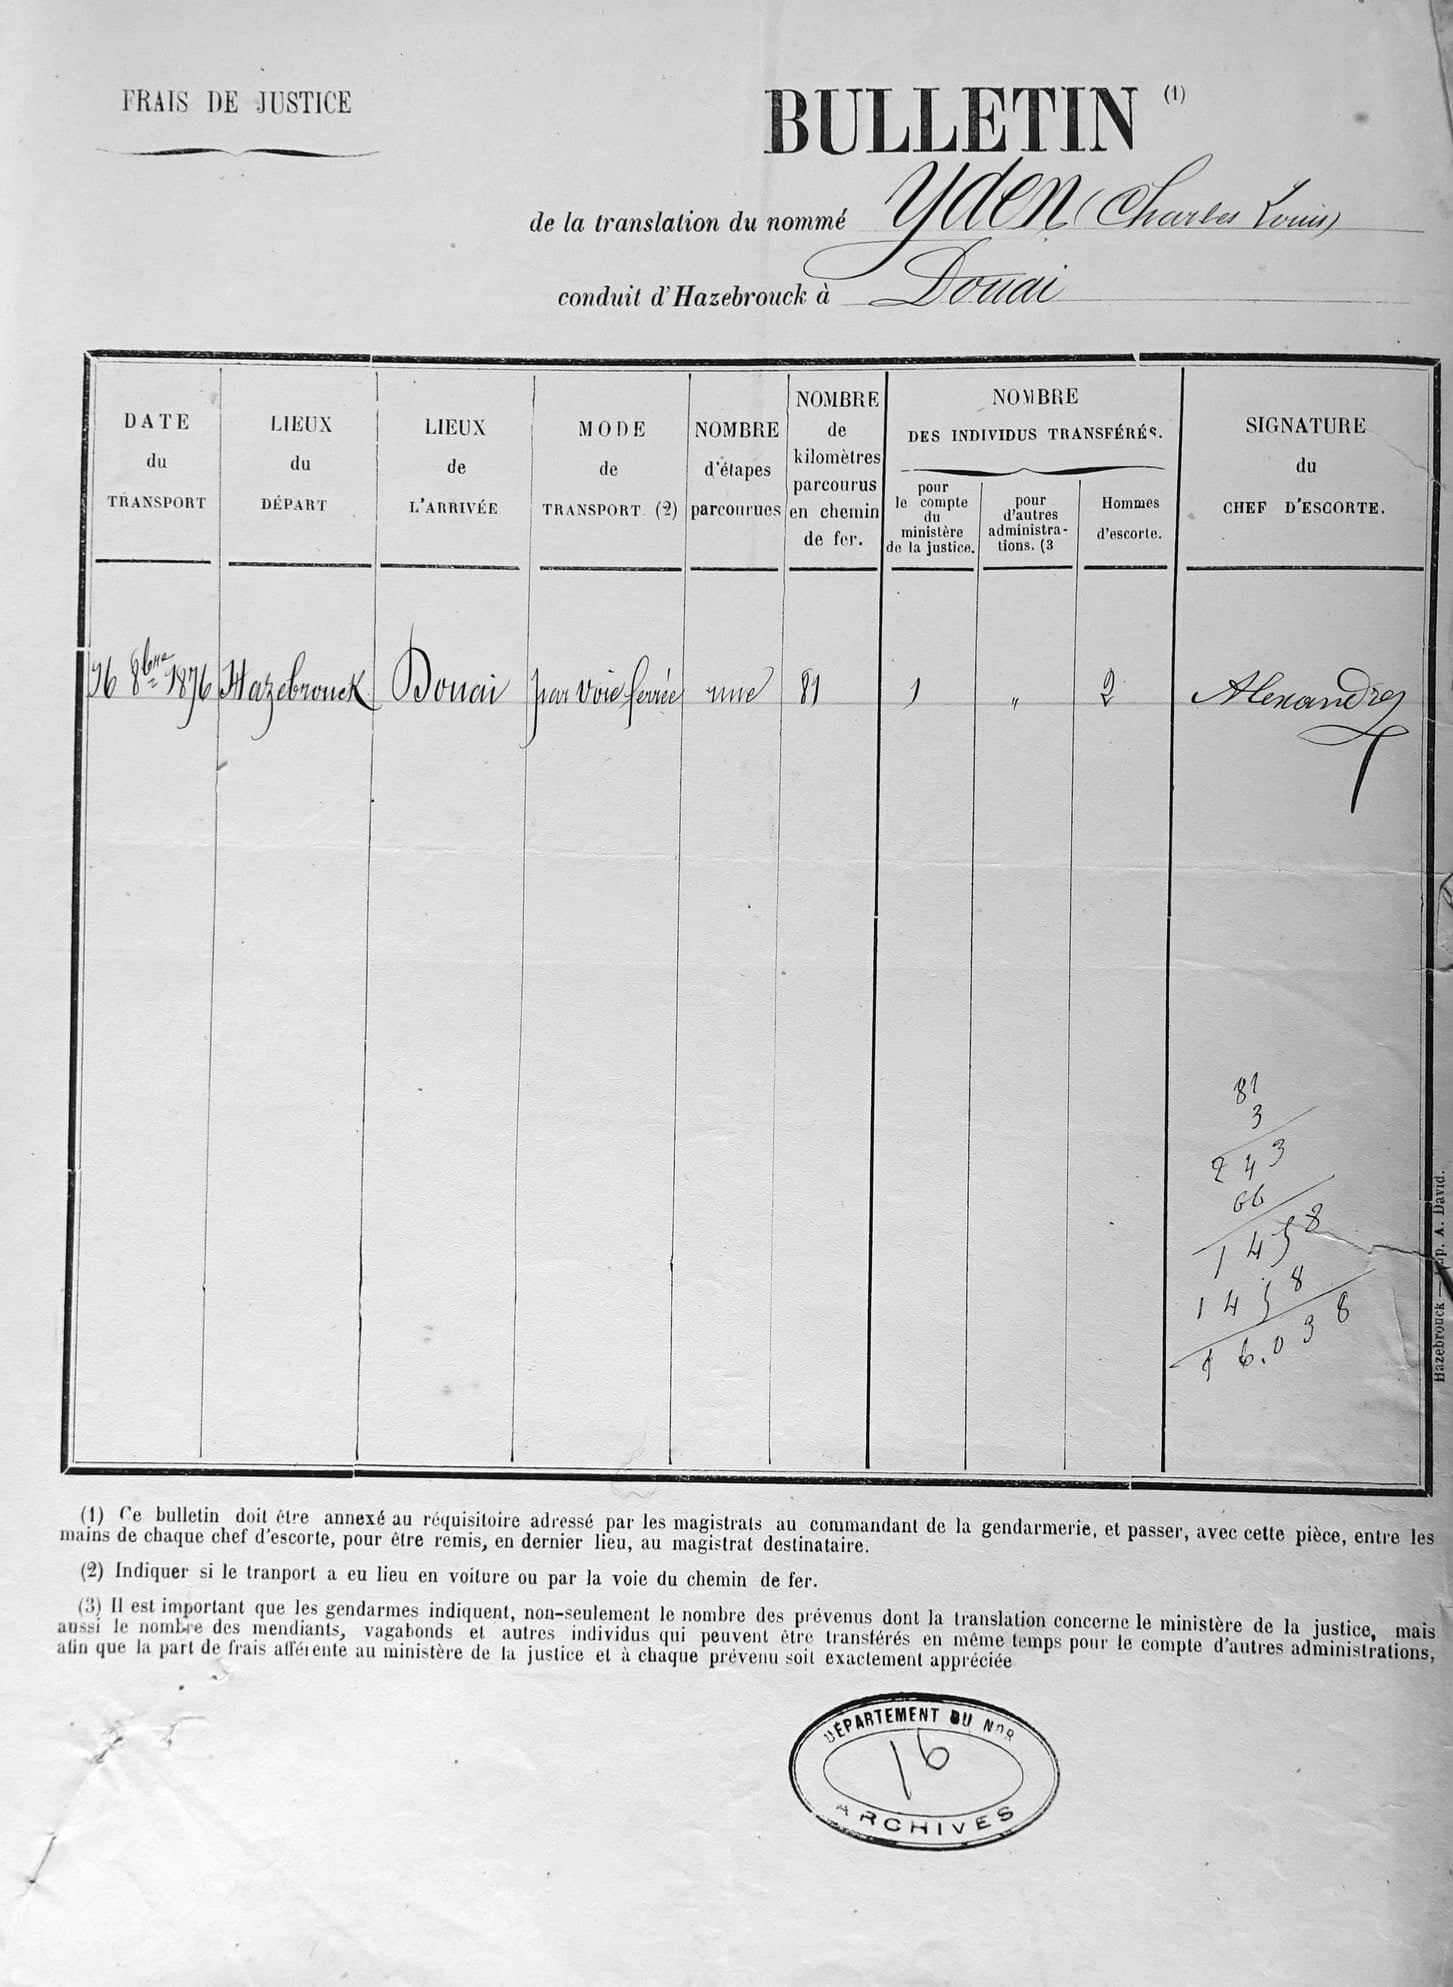 FRAIS DE JUSTICE
BULLETIN (1)
de la translation du nommé Yden (Charles Louis)
conduit d'Hazebrouck à Douai
DATE
du
TRANSPORT
LIEUX
du
DÉPART
LIEUX
de
L'ARRIVÉE
MODE
de
TRANSPORT. (2)
NOMBRE
d'étapes
parcourues
NOMBRE
de
kilomètres
parcourus
en chemin
de fer.
NOMBRE
DES INDIVIDUS TRANSFÉRÉS.
pour
le compte
du
ministère
de la justice.
pour
d'autres
administra-
tions. (3
Hommes
d'escorte.
SIGNATURE
du
CHEF D'ESCORTE.
8bre 1876 Hazebrouck Douai par voie ferrée une 81 1 " 2 Alexandre
81
3
243
66
1458
1458
16.038
Hazebrouck — Imp. A. David.
(1) Ce bulletin doit être annexé au réquisitoire adressé par les magistrats au commandant de la gendarmerie, et passer, avec cette pièce, entre les
mains de chaque chef d'escorte, pour être remis, en dernier lieu, au magistrat destinataire.
(2) Indiquer si le tranport a eu lieu en voiture ou par la voie du chemin de fer.
(3) Il est important que les gendarmes indiquent, non-seulement le nombre des prévenus dont la translation concerne le ministère de la justice, mais
aussi le nombre des mendiants, vagabonds et autres individus qui peuvent être transférés en même temps pour le compte d'autres administrations,
afin que la part de frais afférente au ministère de la justice et à chaque prévenu soit exactement appréciée
DÉPARTEMENT DU NOR
16
ARCHIVES